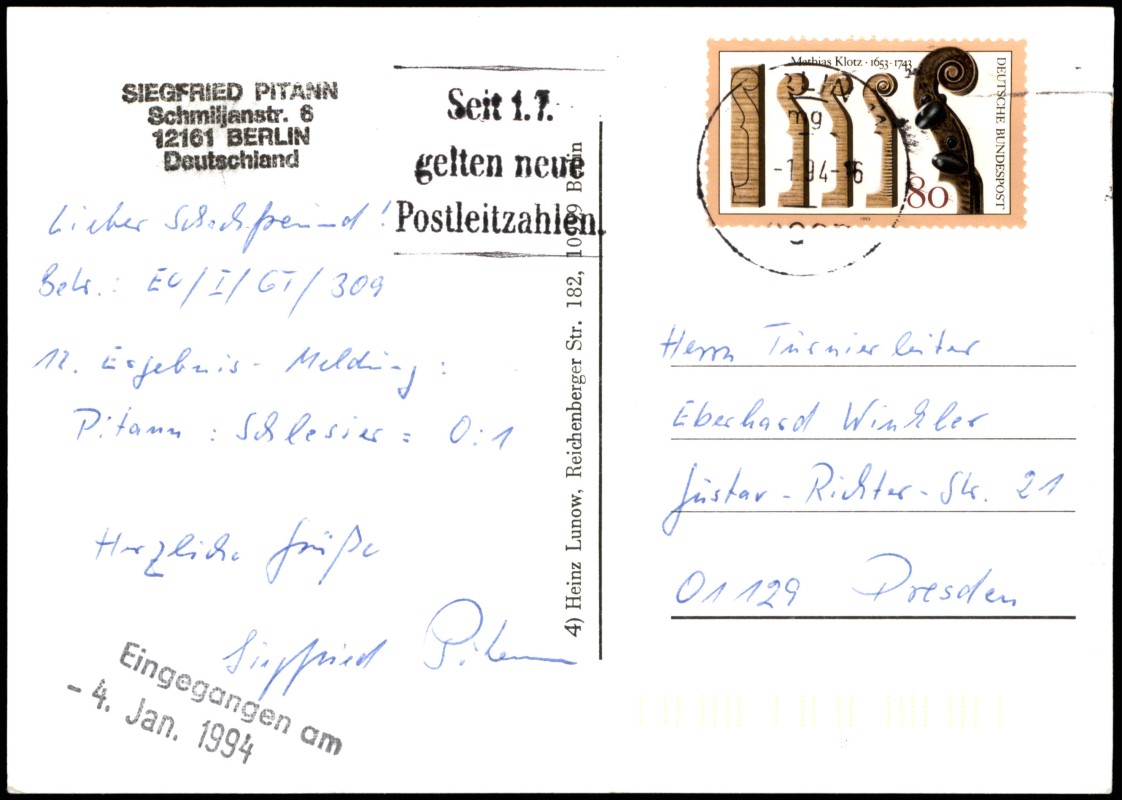 SIEGFRIED PITANN
Schmiljanstr. 6
12161 BERLIN
Deutschland
Seit 1.7.
gelten neue
Postleitzahlen.
Mathias Klotz · 1653-1743
DEUTSCHE BUNDESPOST
80
1993
-1.94-16
Lieber Schachfreund!
Betr.: EU/I/GT/309
12. Ergebnis-Meldung:
Pitann : Schlesier = 0:1
Herzliche Grüße
Siegfried Pitann
Eingegangen am
- 4. Jan. 1994
4) Heinz Lunow, Reichenberger Str. 182, 10 9 B n
Herrn Turnierleiter
Eberhard Winkler
Gustav-Richter-Str. 21
01129 Dresden